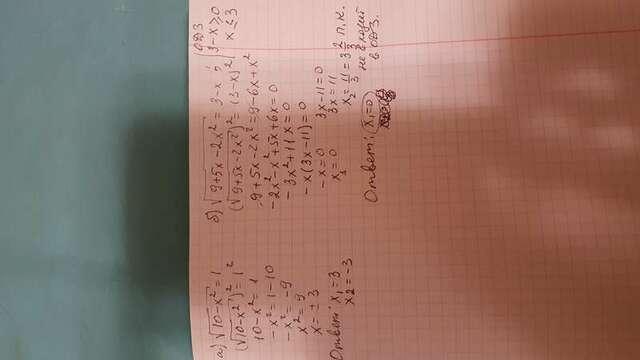 а) √(10-x²) = 1
(√(10-x²))² = 1²
10-x² = 1
-x² = 1-10
-x² = -9
x² = 9
x = ±3
Ответ: x₁ = 3
x₂ = -3
б) √(9+5x-2x²) = 3-x ;
(√(9+5x-2x²))² = (3-x)²
9+5x-2x² = 9-6x+x²
-2x²-x²+5x+6x = 0
-3x²+11x = 0
-x(3x-11) = 0
-x = 0 3x-11 = 0
x₁ = 0 3x = 11
x₂ = 11/3 = 3 2/3 т.к.
не входит
в ОДЗ.
Ответ: x₁ = 0
ОДЗ
3-x ≥ 0
x ≤ 3